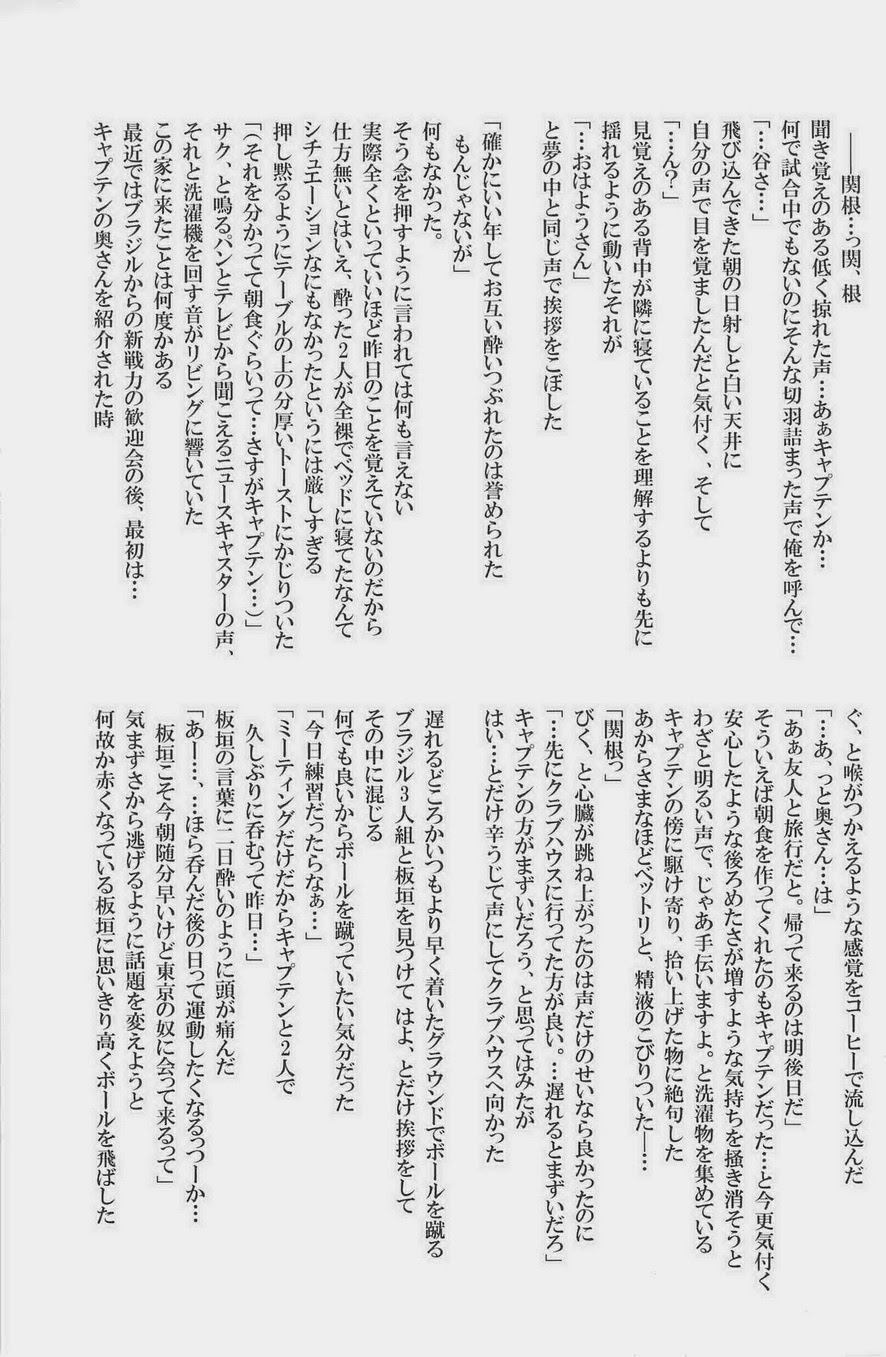 ――関根…っ関、根
聞き覚えのある低く掠れた声…あぁキャプテンか…
何で試合中でもないのにそんな切羽詰まった声で俺を呼んで…
「…谷さ…」
飛び込んできた朝の日射しと白い天井に
自分の声で目を覚ましたんだと気付く、そして
「…ん?」
見覚えのある背中が隣に寝ていることを理解するよりも先に
揺れるように動いたそれが
「…おはようさん」
と夢の中と同じ声で挨拶をこぼした
「確かにいい年してお互い酔いつぶれたのは誉められた
もんじゃないが」
何もなかった。
そう念を押すように言われては何も言えない
実際全くといっていいほど昨日のことを覚えていないのだから
仕方無いとはいえ、酔った2人が全裸でベッドに寝てたなんて
シチュエーションなにもなかったというには厳しすぎる
押し黙るようにテーブルの上の分厚いトーストにかじりついた
「(それを分かってて朝食ぐらいって…さすがキャプテン…)」
サク、と鳴るパンとテレビから聞こえるニュースキャスターの声、
それと洗濯機を回す音がリビングに響いていた
この家に来たことは何度かある
最近ではブラジルからの新戦力の歓迎会の後、最初は…
キャプテンの奥さんを紹介された時
ぐ、と喉がつかえるような感覚をコーヒーで流し込んだ
「…あ、っと奥さん…は」
「あぁ友人と旅行だと。帰って来るのは明後日だ」
そういえば朝食を作ってくれたのもキャプテンだった…と今更気付く
安心したような後ろめたさが増すような気持ちを掻き消そうと
わざと明るい声で、じゃあ手伝いますよ。と洗濯物を集めている
キャプテンの傍に駆け寄り、拾い上げた物に絶句した
あからさまなほどベットリと、精液のこびりついた―…
「関根っ」
びく、と心臓が跳ね上がったのは声だけのせいなら良かったのに
「…先にクラブハウスに行ってた方が良い。…遅れるとまずいだろ」
キャプテンの方がまずいだろう、と思ってはみたが
はい…とだけ辛うじて声にしてクラブハウスへ向かった
遅れるどころかいつもより早く着いたグラウンドでボールを蹴る
ブラジル3人組と板垣を見つけては よ、とだけ挨拶をして
その中に混じる
何でも良いからボールを蹴っていたい気分だった
「今日練習だったらなぁ…」
「ミーティングだけだからキャプテンと2人で
久しぶりに呑むって昨日…」
板垣の言葉に二日酔いのように頭が痛んだ
「あー…、…ほら呑んだ後の日って運動したくなるっつーか…
板垣こそ今朝随分早いけど東京の奴に会って来るって」
気まずさから逃げるように話題を変えようと
何故か赤くなっている板垣に思いきり高くボールを飛ばした